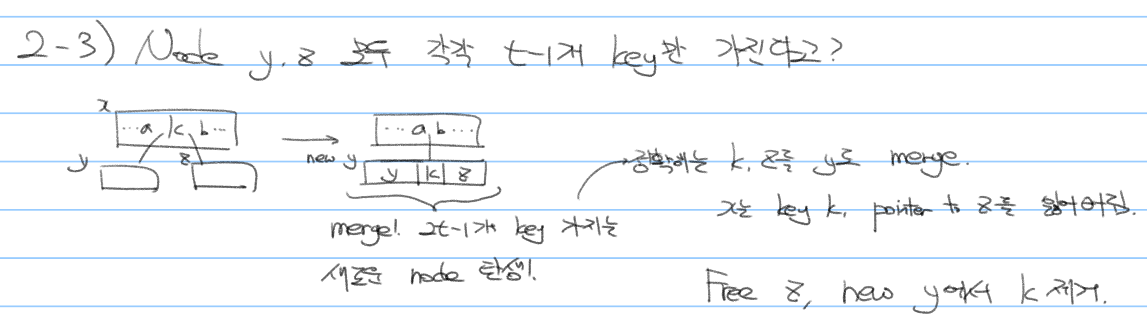 2-3) Node y, z 모두 각각 t-1개 key만 가진다고?
x
...a, k, b...
y z
...a, b...
new y
y k z
merge! 2t-1개 key 가지는
새로운 node 탄생!
정확히는 k, z를 y로 merge.
x는 key k, pointer to z를 잃어버림.
Free z, new y에서 k 제거.